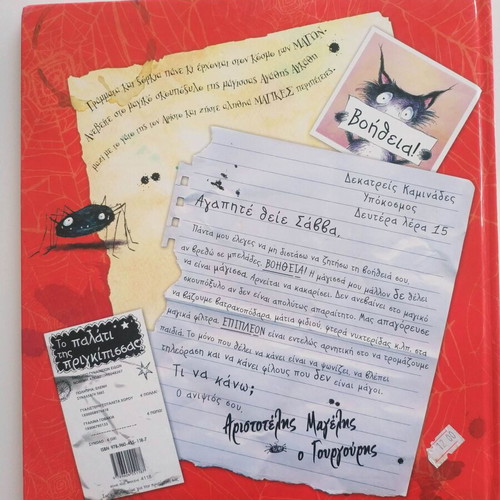 Γράμματα και ξόρκια πάνε κι έρχονται στον κόσμο των ΜΑΓΩΝ.
Ανεβείτε στο μαγικό σκουπόξυλο της μάγισσας
μαζί με το γάτο της τον Άριστο και ζήστε αληθινά ΜΑΓΙΚΕΣ περιπέτειες.
Βοήθεια!
Δεκατρείς Καμινάδες
Υπόκοσμος
Δευτέρα λέρα 15
Αγαπητέ θείε Σάββα,
Πάντα μου έλεγες να μη διστάσω να ζητήσω τη βοήθειά σου,
αν βρεθώ σε μπελάδες. ΒΟΗΘΕΙΑ! Η μάγισσά μου μάλλον δε θέλει
να είναι μάγισσα. Αρνείται να κακαρίσει. Δεν ανεβαίνει στο μαγικό
σκουπόξυλο αν δεν είναι απολύτως απαραίτητο. Μας απαγόρευσε
να βάζουμε βατραχοπόδαρα, μάτια φιδιού, φτερά νυχτερίδας κ.λπ. στα
μαγικά φίλτρα. ΕΠΙΠΛΕΟΝ είναι εντελώς αρνητική στο να τρομάζουμε
παιδιά. Το μόνο που θέλει να κάνει είναι να ψωνίζει, να βλέπει
τηλεόραση και να κάνει φίλους που δεν είναι μάγοι.
Τι να κάνω;
Ο ανιψιός σου,
Αριστοτέλης Μαγέλης
ο Γουργούρης
Το παλάτι
της
πριγκίπισσας
17.00